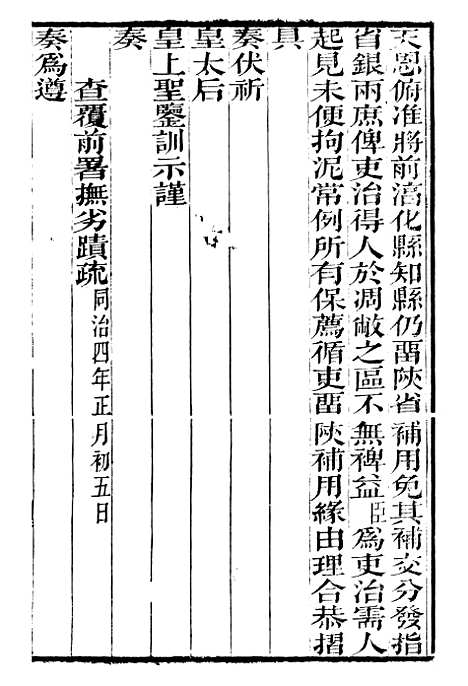 天恩俯准將前淯化縣知縣仍畱陝省補用免其補交分發指
省銀兩庶俾吏治得人於凋敝之區不無裨益臣爲吏治需人
起見未便拘泥常例所有保薦循吏畱陝補用緣由理合恭摺
具
奏伏祈
皇太后
皇上聖鑒訓示謹
奏
查覆前署撫劣蹟疏同治四年正月初五日
奏爲遵